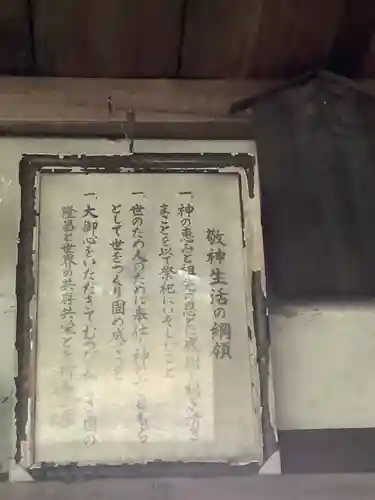 敬神生活の綱領
一、神の恵みと祖先の恩とに感謝し明き清き
まことを以て祭祀にいそしむこと
一、世のため人のために奉仕し神のみこともち
として世をつくり固め成すこと
一、大御心をいただきてむつび和らぎ国の
隆昌と世界の共存共栄とを祈ること